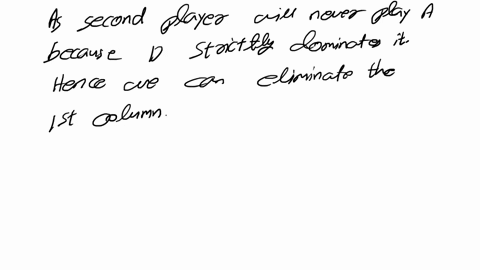 As second player will never play A
because D strictly dominate it.
Hence we can eliminate the
1st column.